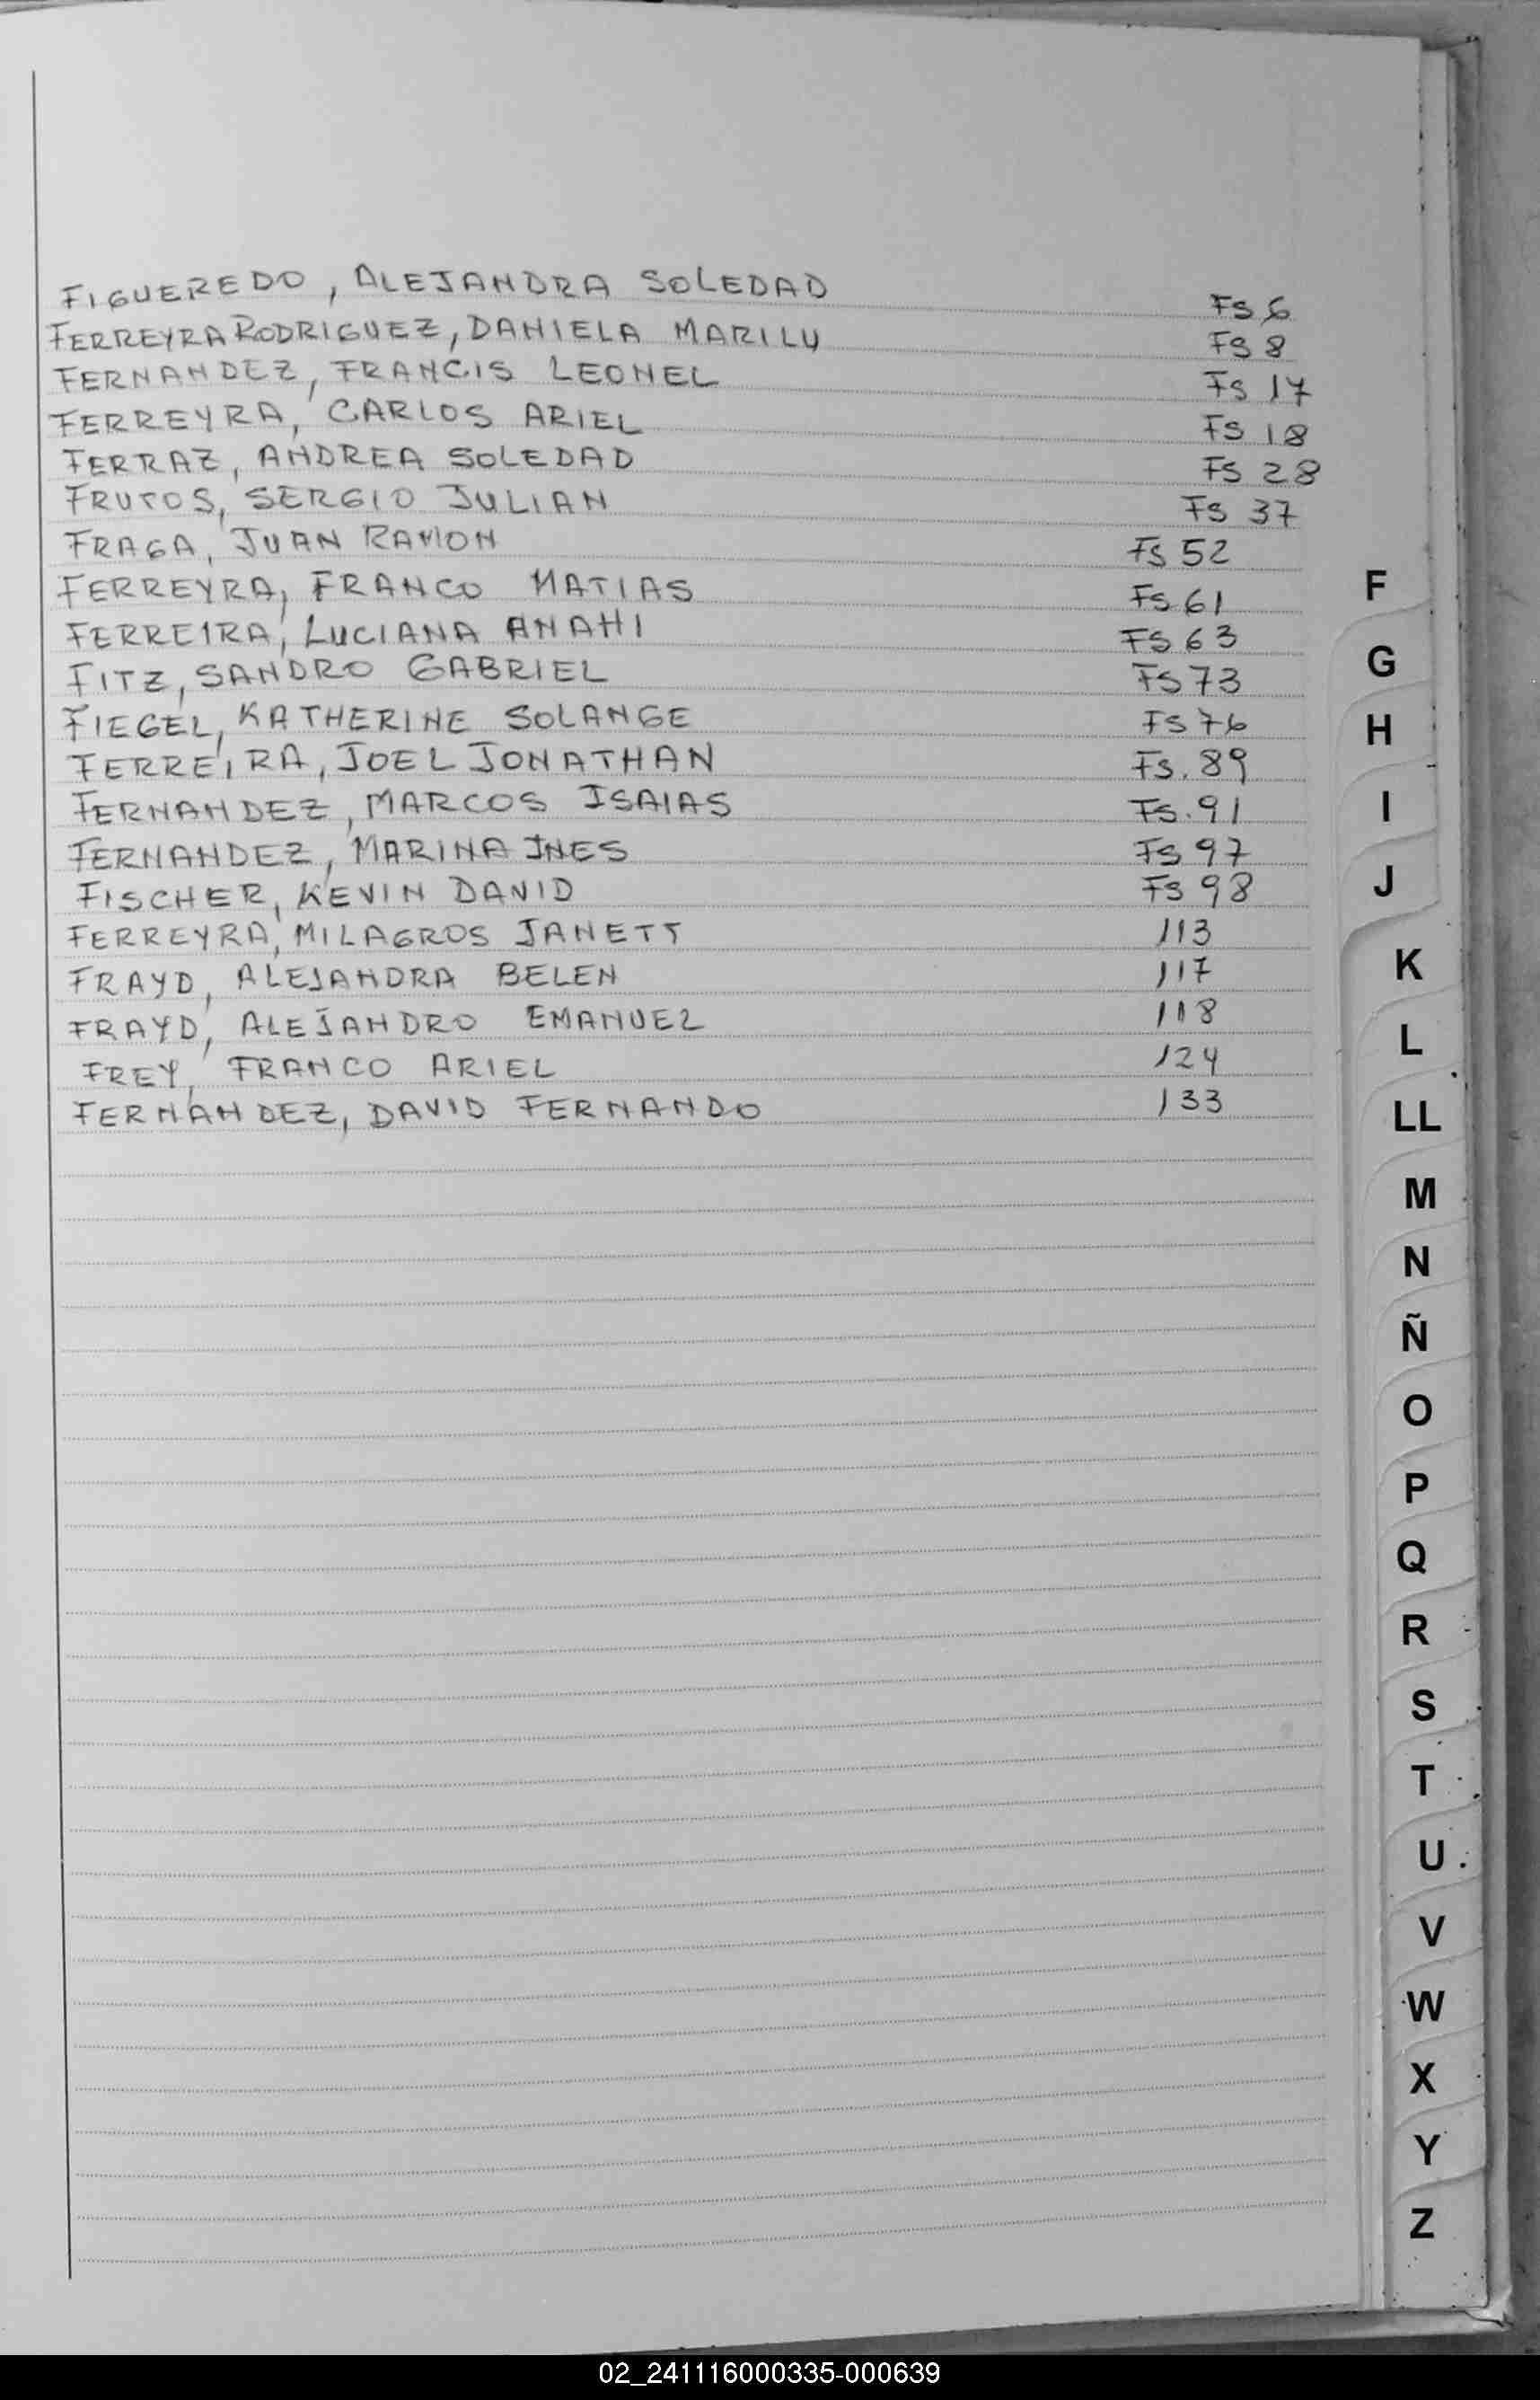 FIGUEREDO, ALEJANDRA SOLEDAD Fs 6
FERREYRA RODRIGUEZ, DANIELA MARILU Fs 8
FERNANDEZ, FRANCIS LEONEL Fs 17
FERREYRA, CARLOS ARIEL Fs 18
FERRAZ, ANDREA SOLEDAD Fs 28
FRUTOS, SERGIO JULIAN Fs 37
FRAGA, JUAN RAMON Fs 52
FERREYRA, FRANCO MATIAS Fs 61
FERREIRA, LUCIANA ANAHI Fs 63
FITZ, SANDRO GABRIEL Fs 73
FIEGEL, KATHERINE SOLANGE Fs 76
FERREIRA, JOEL JONATHAN Fs. 89
FERNANDEZ, MARCOS ISAIAS Fs. 91
FERNANDEZ, MARINA INES Fs 97
FISCHER, KEVIN DAVID Fs 98
FERREYRA, MILAGROS JANETT 113
FRAYD, ALEJANDRA BELEN 117
FRAYD, ALEJANDRO EMANUEL 118
FREY, FRANCO ARIEL 124
FERNANDEZ, DAVID FERNANDO 133
F
G
H
I
J
K
L
LL
M
N
Ñ
O
P
Q
R
S
T
U
V
W
X
Y
Z
02_241116000335-000639